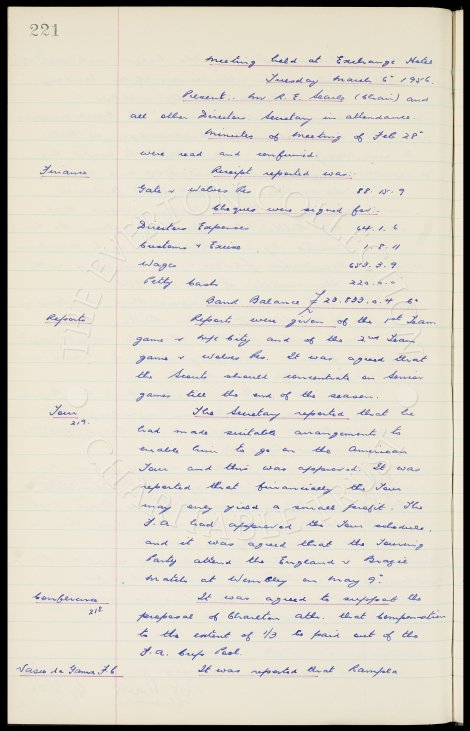 221
Meeting held at Exchange Hotel
Tuesday March 6th 1956.
Present.. Mr R. E. Searle (Chair) and
all other Directors Secretary in attendance.
Minutes of Meeting of Feb 28th
were read and confirmed.
Finance Receipt reported was:
Gate v Wolves Res 88.15.9
Cheques were signed for:
Directors Expenses 64.1.6
Customs & Excise 1.8.11
Wages 653.3.9
Petty Cash 220.0.0
Bank Balance £23,833.0.4
Reports Reports were given of the 1st Team
game v M/c City and of the 2nd Team
game v Wolves Res. It was agreed that
the Scouts should concentrate on Senior
games till the end of the season.
Tour The Secretary reported that he
219. had made suitable arrangements to
enable him to go on the American
Tour and this was approved. It was
reported that financially the Tour
may only yield a small profit. The
F.A. had approved the Tour schedule.
and it was agreed that the Touring
Party attend the England v Brazil
match at Wembley on May 9th.
Conference It was agreed to support the
218. proposal of Charlton Ath. that Compensation
to the extent of 1/3 be paid out of the
F.A. Cup Pool.
Vasco da Gama F.C It was reported that Rampla
THE EVERTON COLLECTION
CHARITABLE TRUST